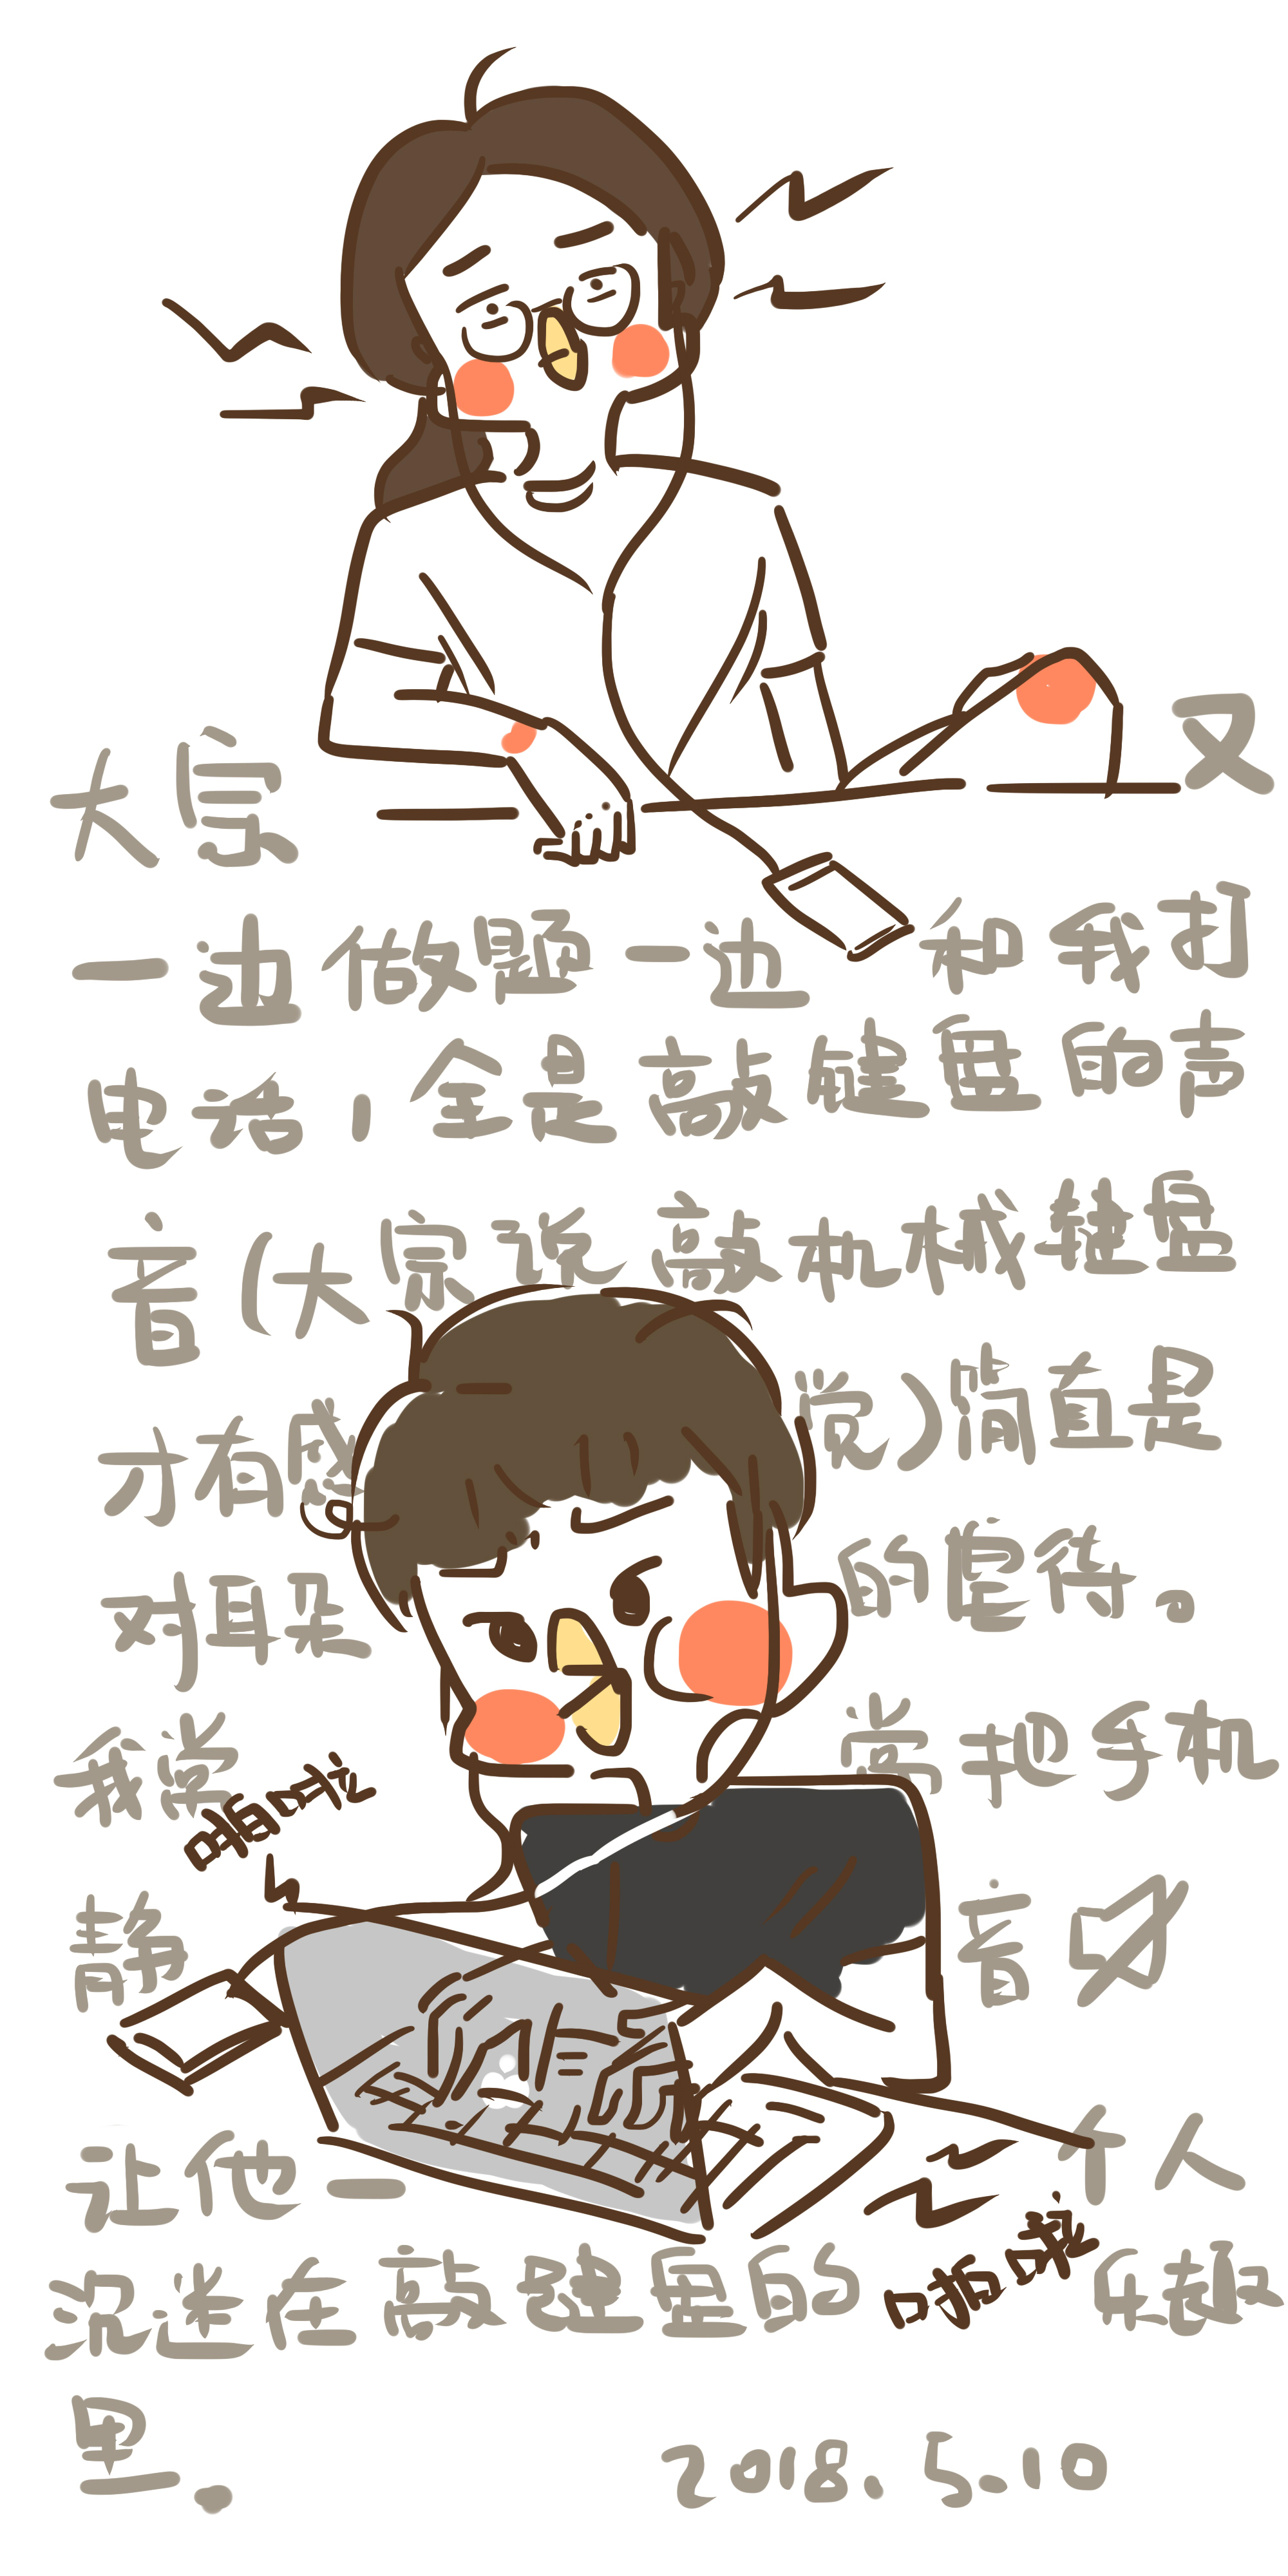 大宗 又
一边做题一边 和我打
电话，全是敲键盘的声
音(大宗说敲机械键盘
才有感 觉)简直是
对耳朵 的虐待。
我常 常把手机
啪啦
静 音
让他一 个人
沉迷在敲键盘的 乐趣
啪啦
里.
2018.5.10